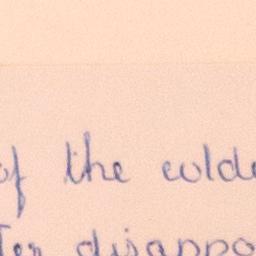 of the colde
ter disappo